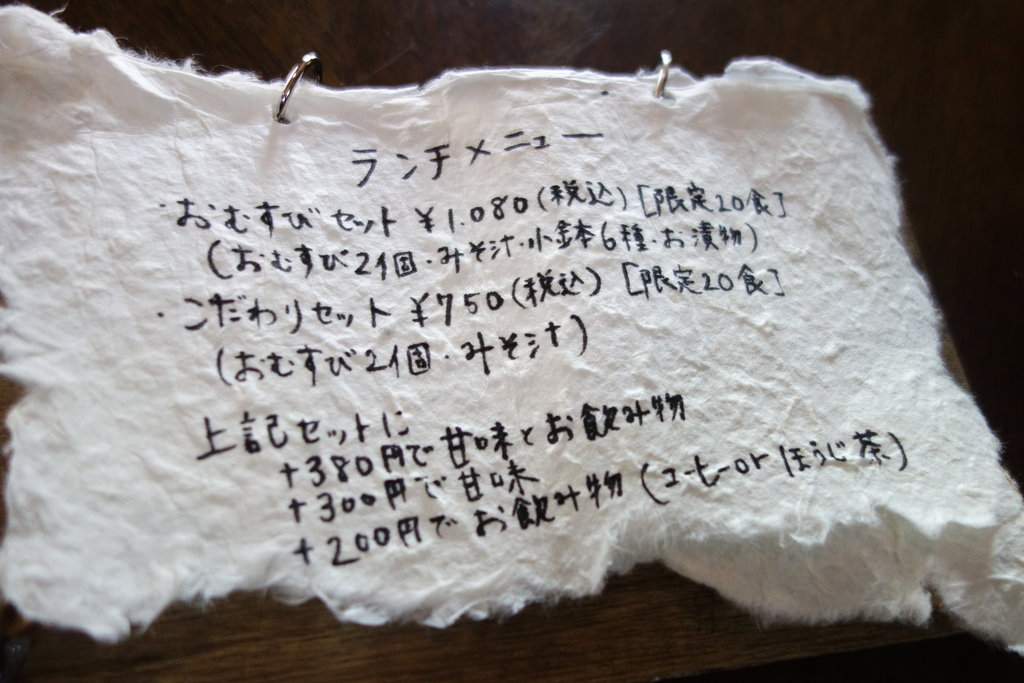 ランチメニュー
・おむすびセット ¥1.080(税込)[限定20食]
(おむすび2個・みそ汁・小鉢6種・お漬物)
・こだわりセット ¥750(税込) [限定20食]
(おむすび2個・みそ汁)
上記セットに
+380円で甘味とお飲み物
+300円で甘味
+200円でお飲み物(コーヒーorほうじ茶)